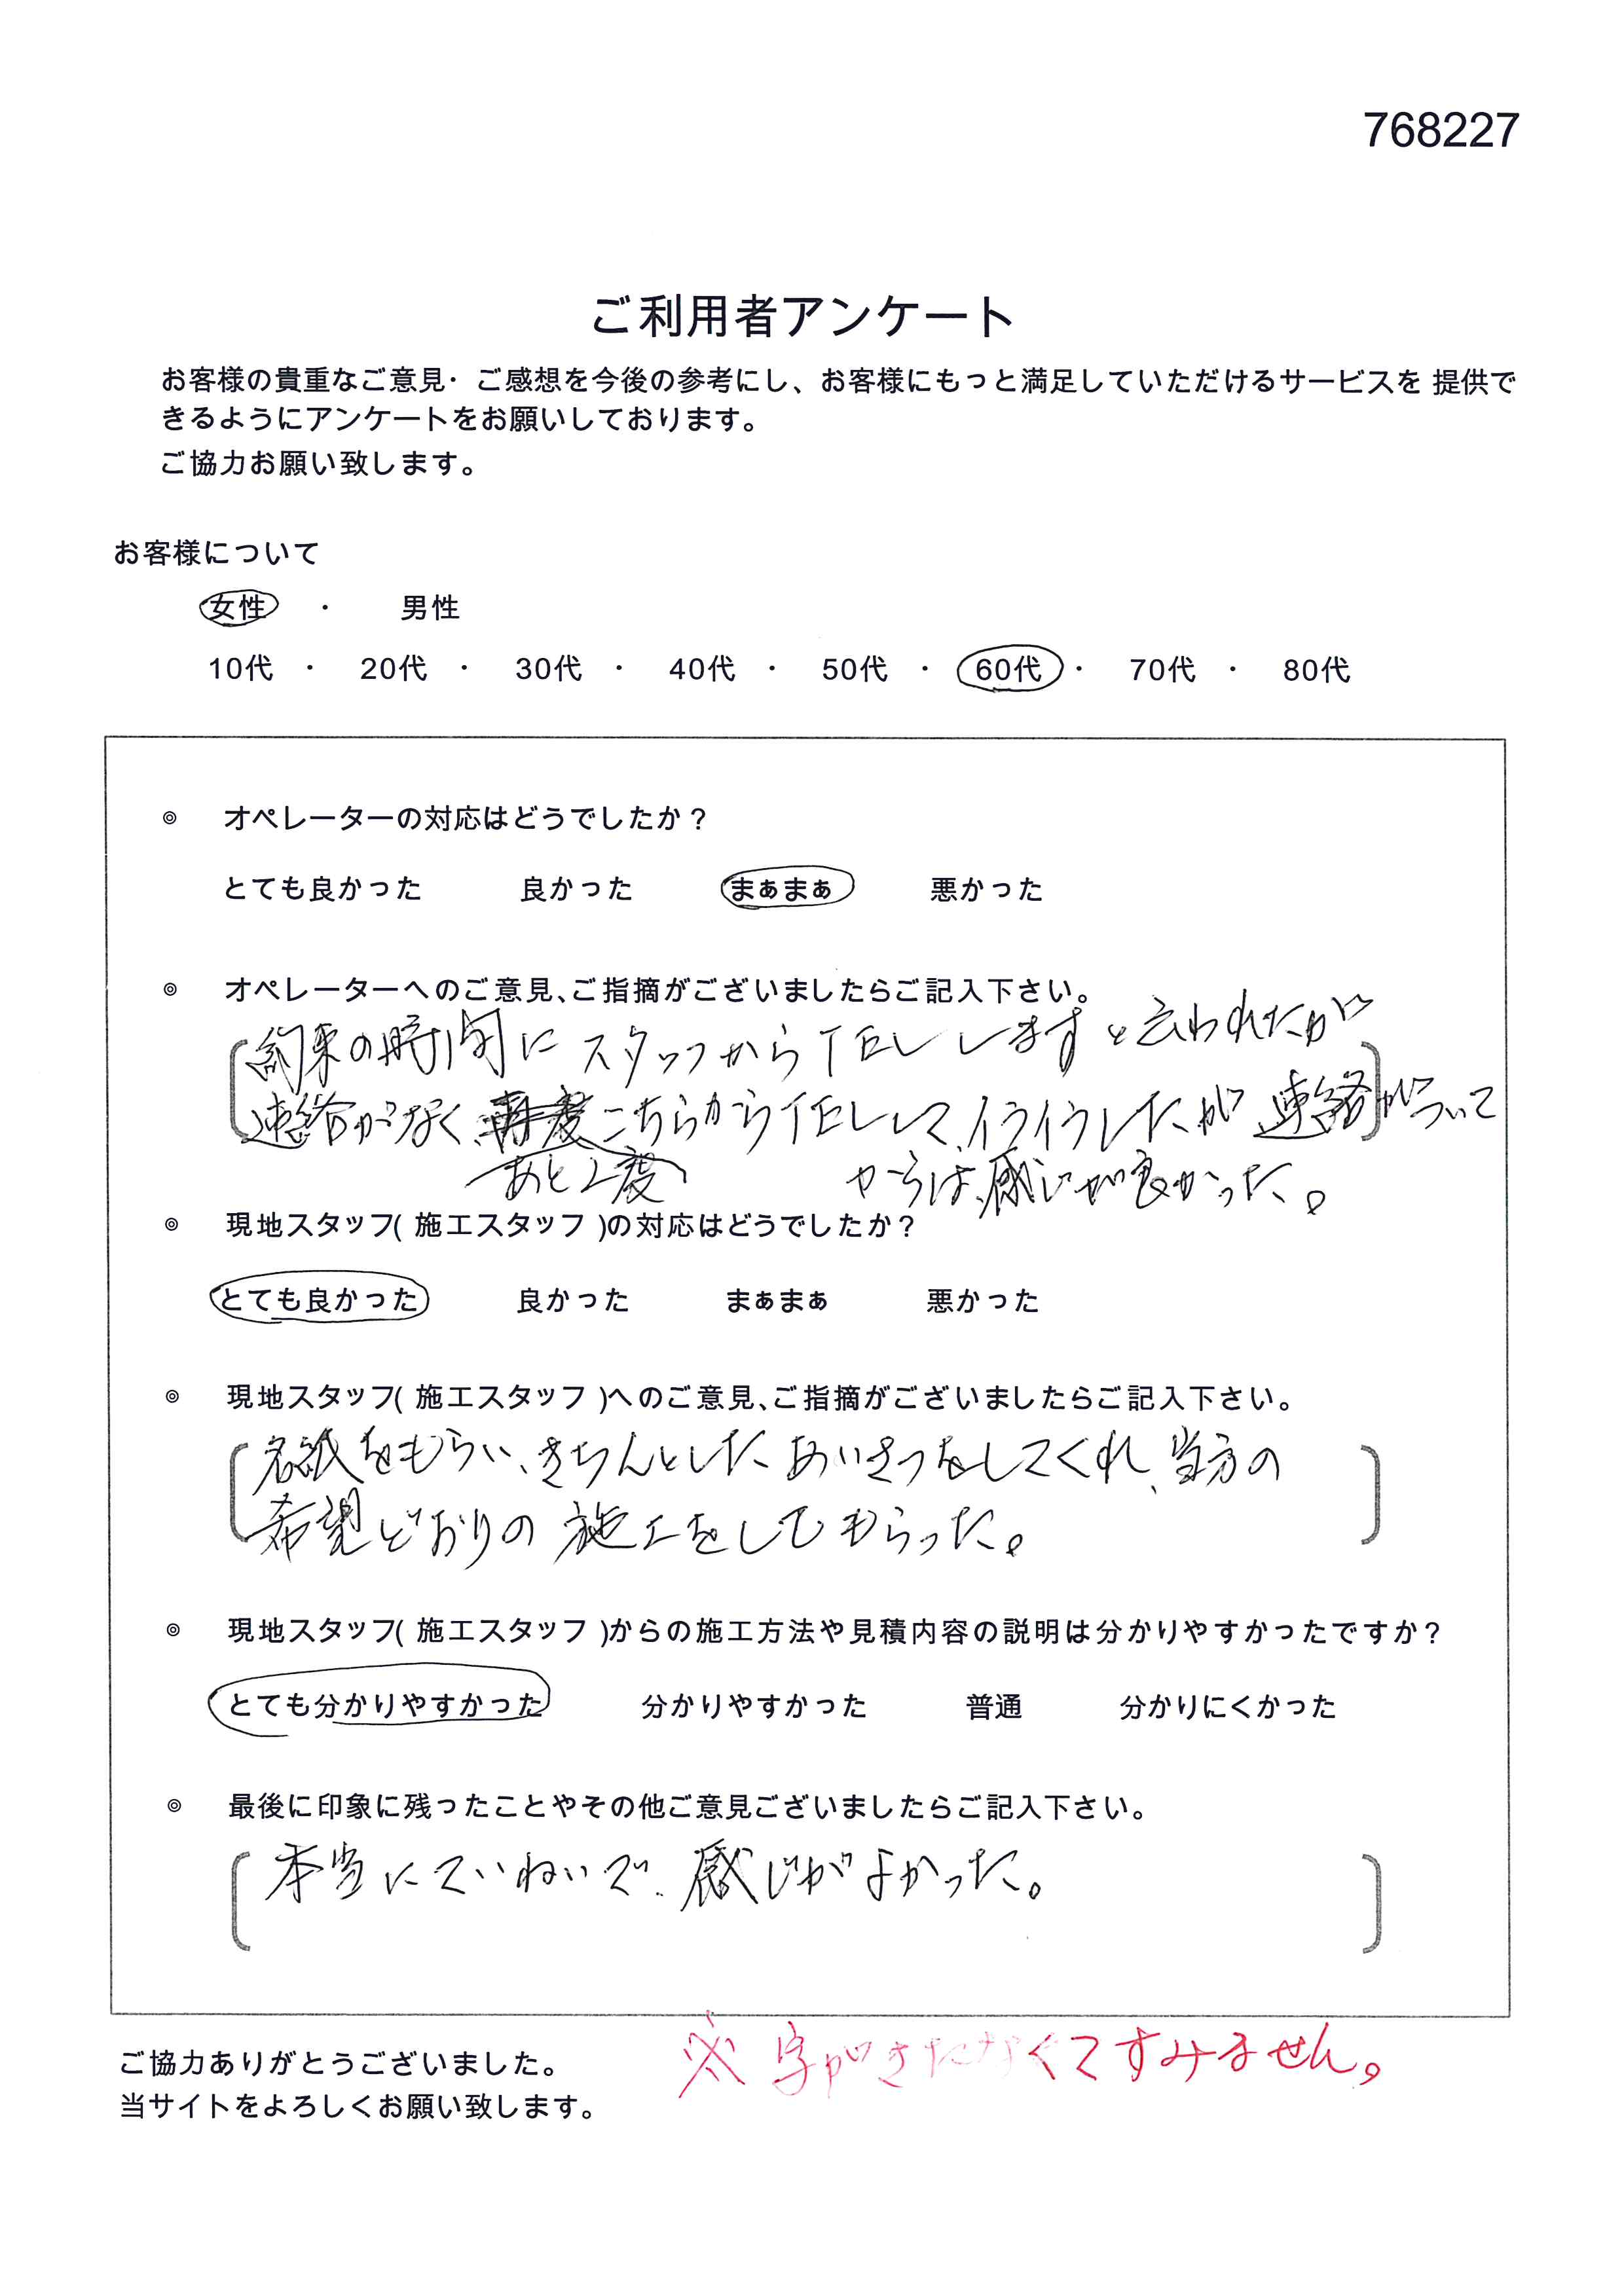 768227
ご利用者アンケート
お客様の貴重なご意見・ご感想を今後の参考にし、お客様にもっと満足していただけるサービスを 提供で
きるようにアンケートをお願いしております。
ご協力お願い致します。
お客様について
女性 ・ 男性
10代 ・ 20代 ・ 30代 ・ 40代 ・ 50代 ・ 60代 ・ 70代 ・ 80代
◎ オペレーターの対応はどうでしたか？
とても良かった 良かった まぁまぁ 悪かった
◎ オペレーターへのご意見、ご指摘がございましたらご記入下さい。
約束の時間に スタッフからTELしますと言われたが
連絡がなく、再度こちらからTELして、イライラしたが 連絡がついて
あと2度 からは、感じが良かった。
◎ 現地スタッフ( 施工スタッフ )の対応はどうでしたか？
とても良かった 良かった まぁまぁ 悪かった
◎ 現地スタッフ( 施工スタッフ )へのご意見、ご指摘がございましたらご記入下さい。
名紙をもらい、きちんとした あいさつをしてくれ、当方の
希望どおりの 施工をしてもらった。
◎ 現地スタッフ( 施工スタッフ )からの施工方法や見積内容の説明は分かりやすかったですか？
とても分かりやすかった 分かりやすかった 普通 分かりにくかった
◎ 最後に印象に残ったことやその他ご意見ございましたらご記入下さい。
本当にていねいで、感じがよかった。
※ 字がきたなくてすみません。
ご協力ありがとうございました。
当サイトをよろしくお願い致します。